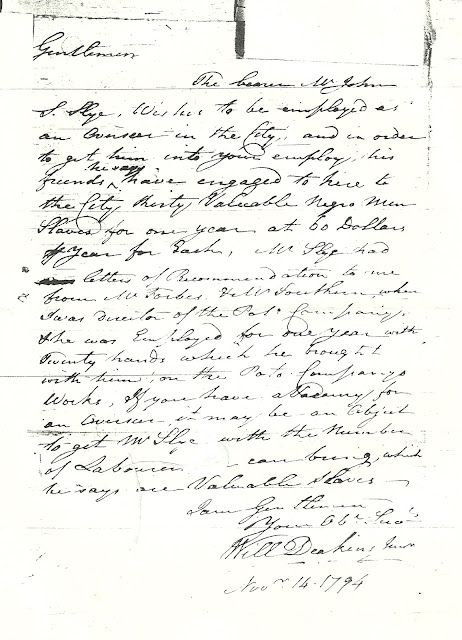 Gentlemen
The bearer Mr John
S. Slye, Wishes to be employed as
an Overseer in the City, and in order
to get him into your employ, his
he says
friends have engaged to here to
the City thirty Valuable Negro Men
Slaves for one year at 60 Dollars
Year for Each, Mr Slye had
letters of Recommendation to me
from Mr Forbes & Mr Southern, when
I was director of the Poto Company,
& he was Employed for one year with
Twenty hands which he brought
with him, on the Poto. Companys
Works, If you have a Vacancy for
an Overseer it may be an Object
to get Mr Slye with the Number
of Labourers can bring, which
he says are Valuable Slaves
I am Gentlemen
Your Obt Servt
Will Deakins Junr
Novr 14. 1794